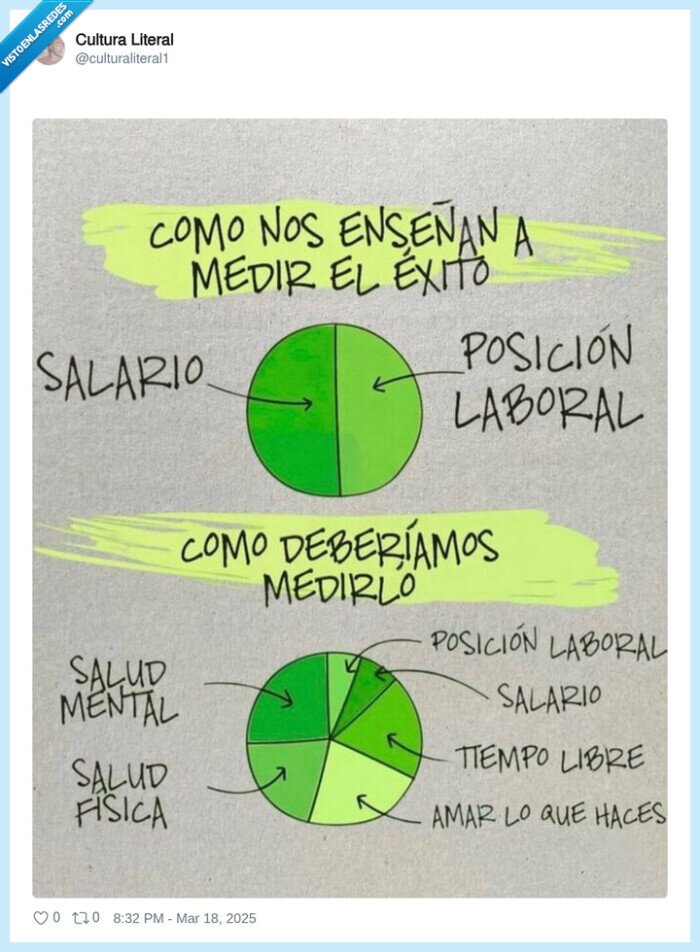 VISTOENLASREDES
.com
Cultura Literal
@culturaliteral1
COMO NOS ENSEÑAN A
MEDIR EL ÉXITO
SALARIO
POSICIÓN
LABORAL
COMO DEBERÍAMOS
MEDIRLO
POSICIÓN LABORAL
SALUD
MENTAL
SALARIO
TIEMPO LIBRE
SALUD
FÍSICA
AMAR LO QUE HACES
0 0 8:32 PM - Mar 18, 2025